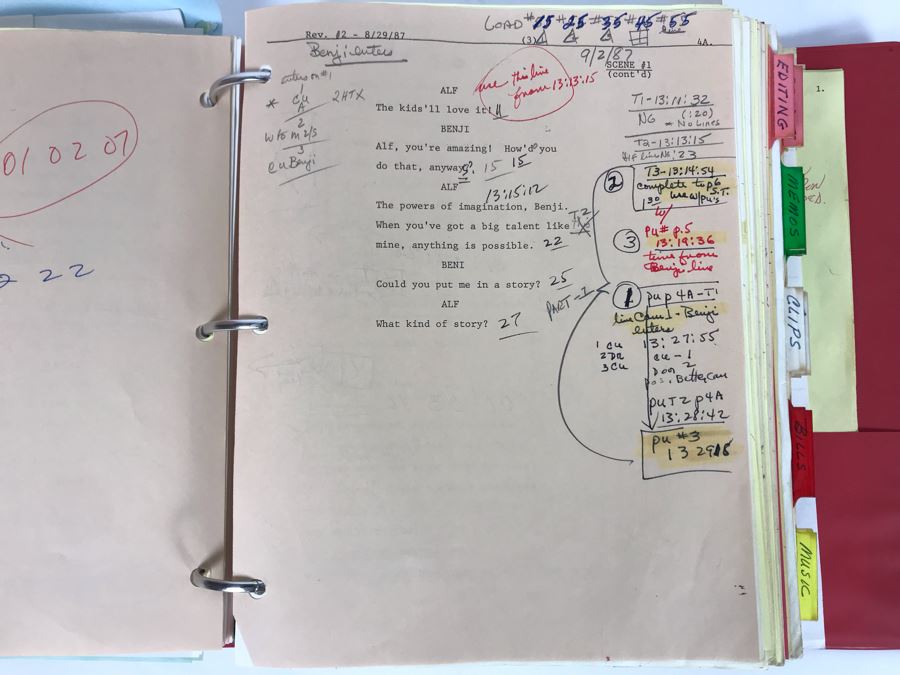 01 02 07
2 22
LOAD #15 #25 #35 #45 #55
Rev. #2 - 8/29/87
(3)
line
4A.
Benji enters
9/2/87
SCENE #1
(cont'd)
enters on #1
* CU 2HTX
A
2
w/o m 2/s
3
cu Benji
use this line
from 13:13:15
ALF
The kids'll love it!
BENJI
Alf, you're amazing! How'd you
do that, anyway? 15 15
ALF
13:15:12
The powers of imagination, Benji.
When you've got a big talent like
T2
mine, anything is possible. 22
BENI
Could you put me in a story? 25
PART-1
ALF
What kind of story? 27
T1-13:11:32
NG (:20)
NO LINES
T2-13:13:15
Alf Line No: 23
2
T3-13:14:54
complete to p6
1 30 use w/pu's S.T.
w/
3
PU# p.5
13:19:36
time from
Benji line
1 pu p 4A-T1
line Cam 1 - Benji
enters
13:27:55
1 cu
2
3 cu
cu - 1
2
pos. Better, cam
pu T2 p4A
13:28:42
pu #3
13 29 15
EDITING
MEMOS
CLIPS
BILLS
MUSIC
1.